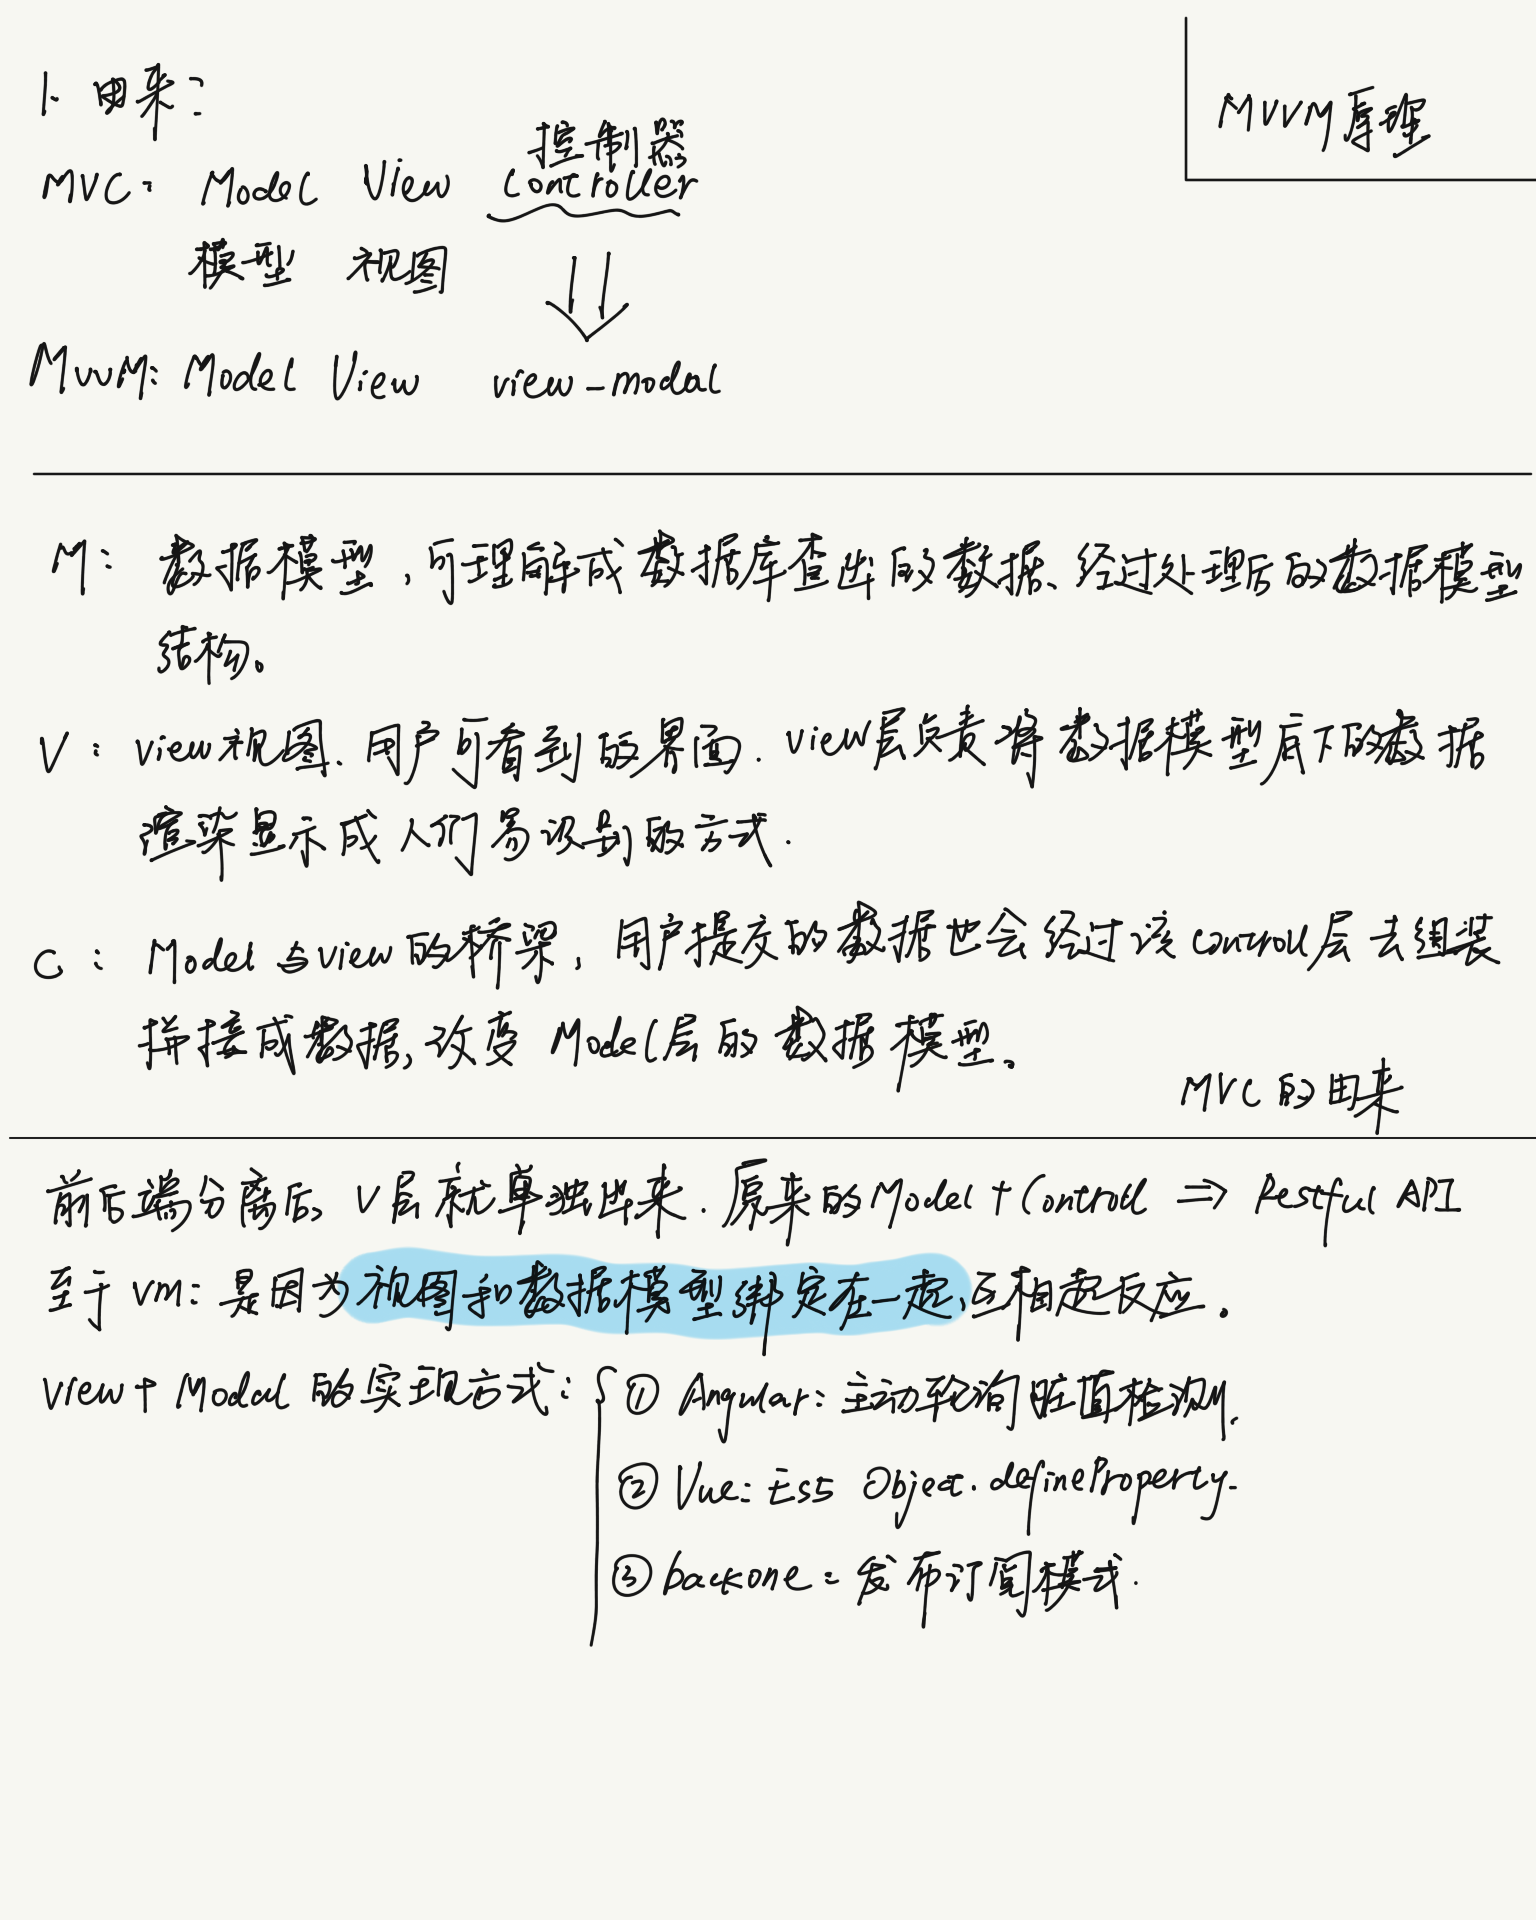 MVVM原理
1. 由来:
控制器
MVC: Model View Controller
模型 视图
MVVM: Model View view-modal
M: 数据模型,可理解成数据库查出的数据、经过处理后的数据模型
结构。
V: view视图.用户可看到的界面.view层负责将数据模型底下的数据
渲染显示成人们易识别的方式.
C: Model与view的桥梁,用户提交的数据也会经过该controll层去组装
拼接成数据,改变Model层的数据模型。
MVC的由来
前后端分离后,V层就单独出来.原来的Model+Controll ⇒ Restful API
至于vm:是因为视图和数据模型绑定在一起,互相起反应.
view+Modal的实现方式:
① Angular:主动轮询脏值检测.
② Vue:ES5 Object.defineProperty.
③ backone:发布订阅模式.